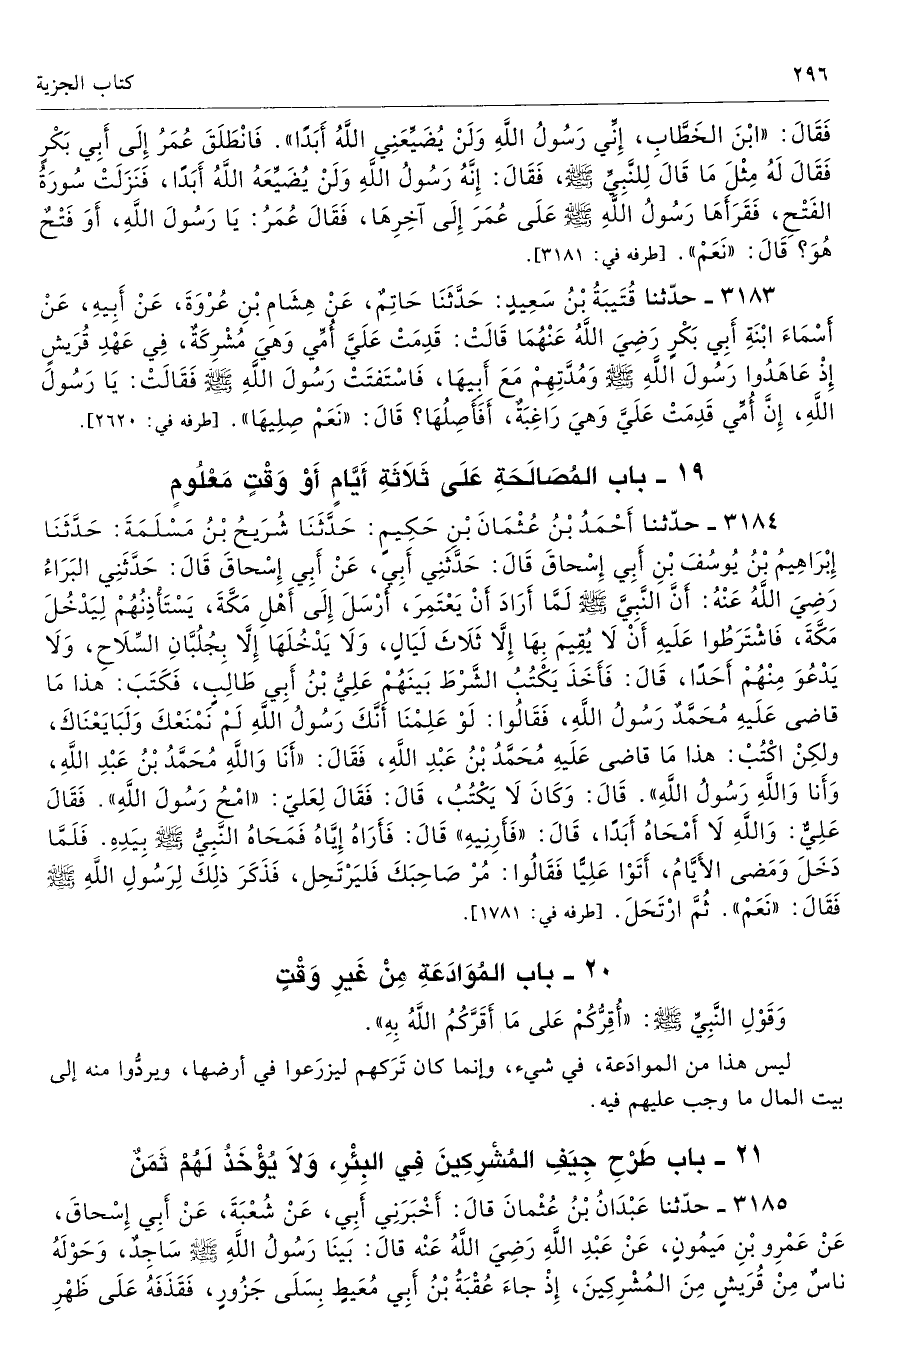 ٢٩٦
كتاب الجزية
فَقَالَ: «ابْنَ الخَطَّابِ، إِنِّي رَسُولُ اللَّهِ وَلَنْ يُضَيِّعَنِي اللَّهُ أَبَدًا». فَانْطَلَقَ عُمَرُ إِلَى أَبِي بَكْرٍ
فَقَالَ لَهُ مِثْلَ مَا قَالَ لِلنَّبِيِّ ﷺ، فَقَالَ: إِنَّهُ رَسُولُ اللَّهِ وَلَنْ يُضَيِّعَهُ اللَّهُ أَبَدًا، فَنَزَلَتْ سُورَةُ
الفَتْحِ، فَقَرَأَهَا رَسُولُ اللَّهِ ﷺ عَلَى عُمَرَ إِلَى آخِرِهَا، فَقَالَ عُمَرُ: يَا رَسُولَ اللَّهِ، أَوَ فَتْحٌ
هُوَ؟ قَالَ: «نَعَمْ». [طرفه في: ٣١٨١].
٣١٨٣ ـ حدّثنا قُتَيبَةُ بْنُ سَعِيدٍ: حَدَّثَنَا حَاتِمٌ، عَنْ هِشَامِ بْنِ عُرْوَةَ، عَنْ أَبِيهِ، عَنْ
أَسْمَاءَ ابْنَةِ أَبِي بَكْرٍ رَضِيَ اللَّهُ عَنْهُمَا قَالَتْ: قَدِمَتْ عَلَيَّ أُمِّي وَهيَ مُشْرِكَةٌ، فِي عَهْدِ قُرَيشٍ
إِذْ عَاهَدُوا رَسُولَ اللَّهِ ﷺ وَمُدَّتِهِمْ مَعَ أَبِيهَا، فَاسْتَفتَتْ رَسُولَ اللَّهِ ﷺ فَقَالَتْ: يَا رَسُولَ
اللَّهِ، إِنَّ أُمِّي قَدِمَتْ عَلَيَّ وَهيَ رَاغِبَةٌ، أَفَأَصِلُهَا؟ قَالَ: «نَعَمْ صِلِيهَا». [طرفه في: ٢٦٢٠].
١٩ ـ باب المُصَالَحَةِ عَلَى ثَلَاثَةِ أَيَّامٍ أَوْ وَقْتٍ مَعْلُومٍ
٣١٨٤ ـ حدّثنا أَحْمَدُ بْنُ عُثْمَانَ بْنِ حَكِيمٍ: حَدَّثَنَا شُرَيحُ بْنُ مَسْلَمَةَ: حَدَّثَنَا
إِبْرَاهِيمُ بْنُ يُوسُفَ بْنِ أَبِي إِسْحاقَ قَالَ: حَدَّثَنِي أَبِي، عَنْ أَبِي إِسْحاقَ قَالَ: حَدَّثَنِي البَرَاءُ
رَضِيَ اللَّهُ عَنْهُ: أَنَّ النَّبِيَّ ﷺ لَمَّا أَرَادَ أَنْ يَعْتَمِرَ، أَرْسَلَ إِلَى أَهْلِ مَكَّةَ، يَسْتَأْذِنُهُمْ لِيَدْخُلَ
مَكَّةَ، فَاشْتَرَطُوا عَلَيهِ أَنْ لَا يُقِيمَ بِهَا إِلَّا ثَلَاثَ لَيَالٍ، وَلَا يَدْخُلَهَا إِلَّا بِجُلُبَّانِ السِّلَاحِ، وَلَا
يَدْعُوَ مِنْهُمْ أَحَدًا، قَالَ: فَأَخَذَ يَكْتُبُ الشَّرْطَ بَينَهُمْ عَلِيُّ بْنُ أَبِي طَالِبٍ، فَكَتَبَ: هذا مَا
قاضى عَلَيهِ مُحَمَّدٌ رَسُولُ اللَّهِ، فَقَالُوا: لَوْ عَلِمْنَا أَنَّكَ رَسُولُ اللَّهِ لَمْ نَمْنَعْكَ وَلَبَايَعْنَاكَ،
ولكِنْ اكْتُبْ: هذا مَا قاضى عَلَيهِ مُحَمَّدُ بْنُ عَبْدِ اللَّهِ، فَقَالَ: «أَنَا وَاللَّهِ مُحَمَّدُ بْنُ عَبْدِ اللَّهِ،
وَأَنا وَاللَّهِ رَسُولُ اللَّهِ». قَالَ: وَكَانَ لَا يَكْتُبُ، قَالَ: فَقَالَ لِعَليّ: «امْحُ رَسُولَ اللَّهِ». فَقَالَ
عَلِيٌّ: وَاللَّهِ لَا أَمْحَاهُ أَبَدًا، قَالَ: «فَأَرِنِيهِ» قَالَ: فَأَرَاهُ إِيَّاهُ فَمَحَاهُ النَّبِيُّ ﷺ بِيَدِهِ. فَلَمَّا
دَخَلَ وَمَضى الأَيَّامُ، أَتَوْا عَلِيًّا فَقَالُوا: مُرْ صَاحِبَكَ فَليَرْتَحِل، فَذَكَرَ ذلِكَ لِرَسُولِ اللَّهِ ﷺ
فَقَالَ: «نَعَمْ». ثُمَّ ارْتَحَلَ. [طرفه في: ١٧٨١].
٢٠ ـ باب المُوَادَعَةِ مِنْ غَيرِ وَقْتٍ
وَقَوْلِ النَّبِيِّ ﷺ: «أُقِرُّكُمْ عَلى مَا أَقَرَّكُمُ اللَّهُ بِهِ».
ليس هذا من الموادَعة، في شيء، وإنما كان تَرَكهم ليزرَعوا في أرضها، ويردُّوا منه إلى
بيت المال ما وجب عليهم فيه.
٢١ ـ باب طَرْحِ جِيَفِ المُشْرِكِينَ فِي البِئْرِ، وَلاَ يُؤْخَذُ لَهُمْ ثَمَنٌ
٣١٨٥ ـ حدّثنا عَبْدَانُ بْنُ عُثْمانَ قالَ: أَخْبَرَنِي أَبِي، عَنْ شُعْبَةَ، عَنْ أَبِي إِسْحاقَ،
عَنْ عَمْرِو بْنِ مَيمُونٍ، عَنْ عَبْدِ اللَّهِ رَضِيَ اللَّهُ عَنْه قالَ: بَينَا رَسُولُ اللَّهِ ﷺ سَاجِدٌ، وَحَوْلَهُ
ناسٌ مِنْ قُرَيشٍ مِنَ المُشْرِكِينَ، إِذْ جاءَ عُقْبَةُ بْنُ أَبِي مُعَيطٍ بِسَلَى جَزُورٍ، فَقَذَفَهُ عَلَى ظَهْرِ